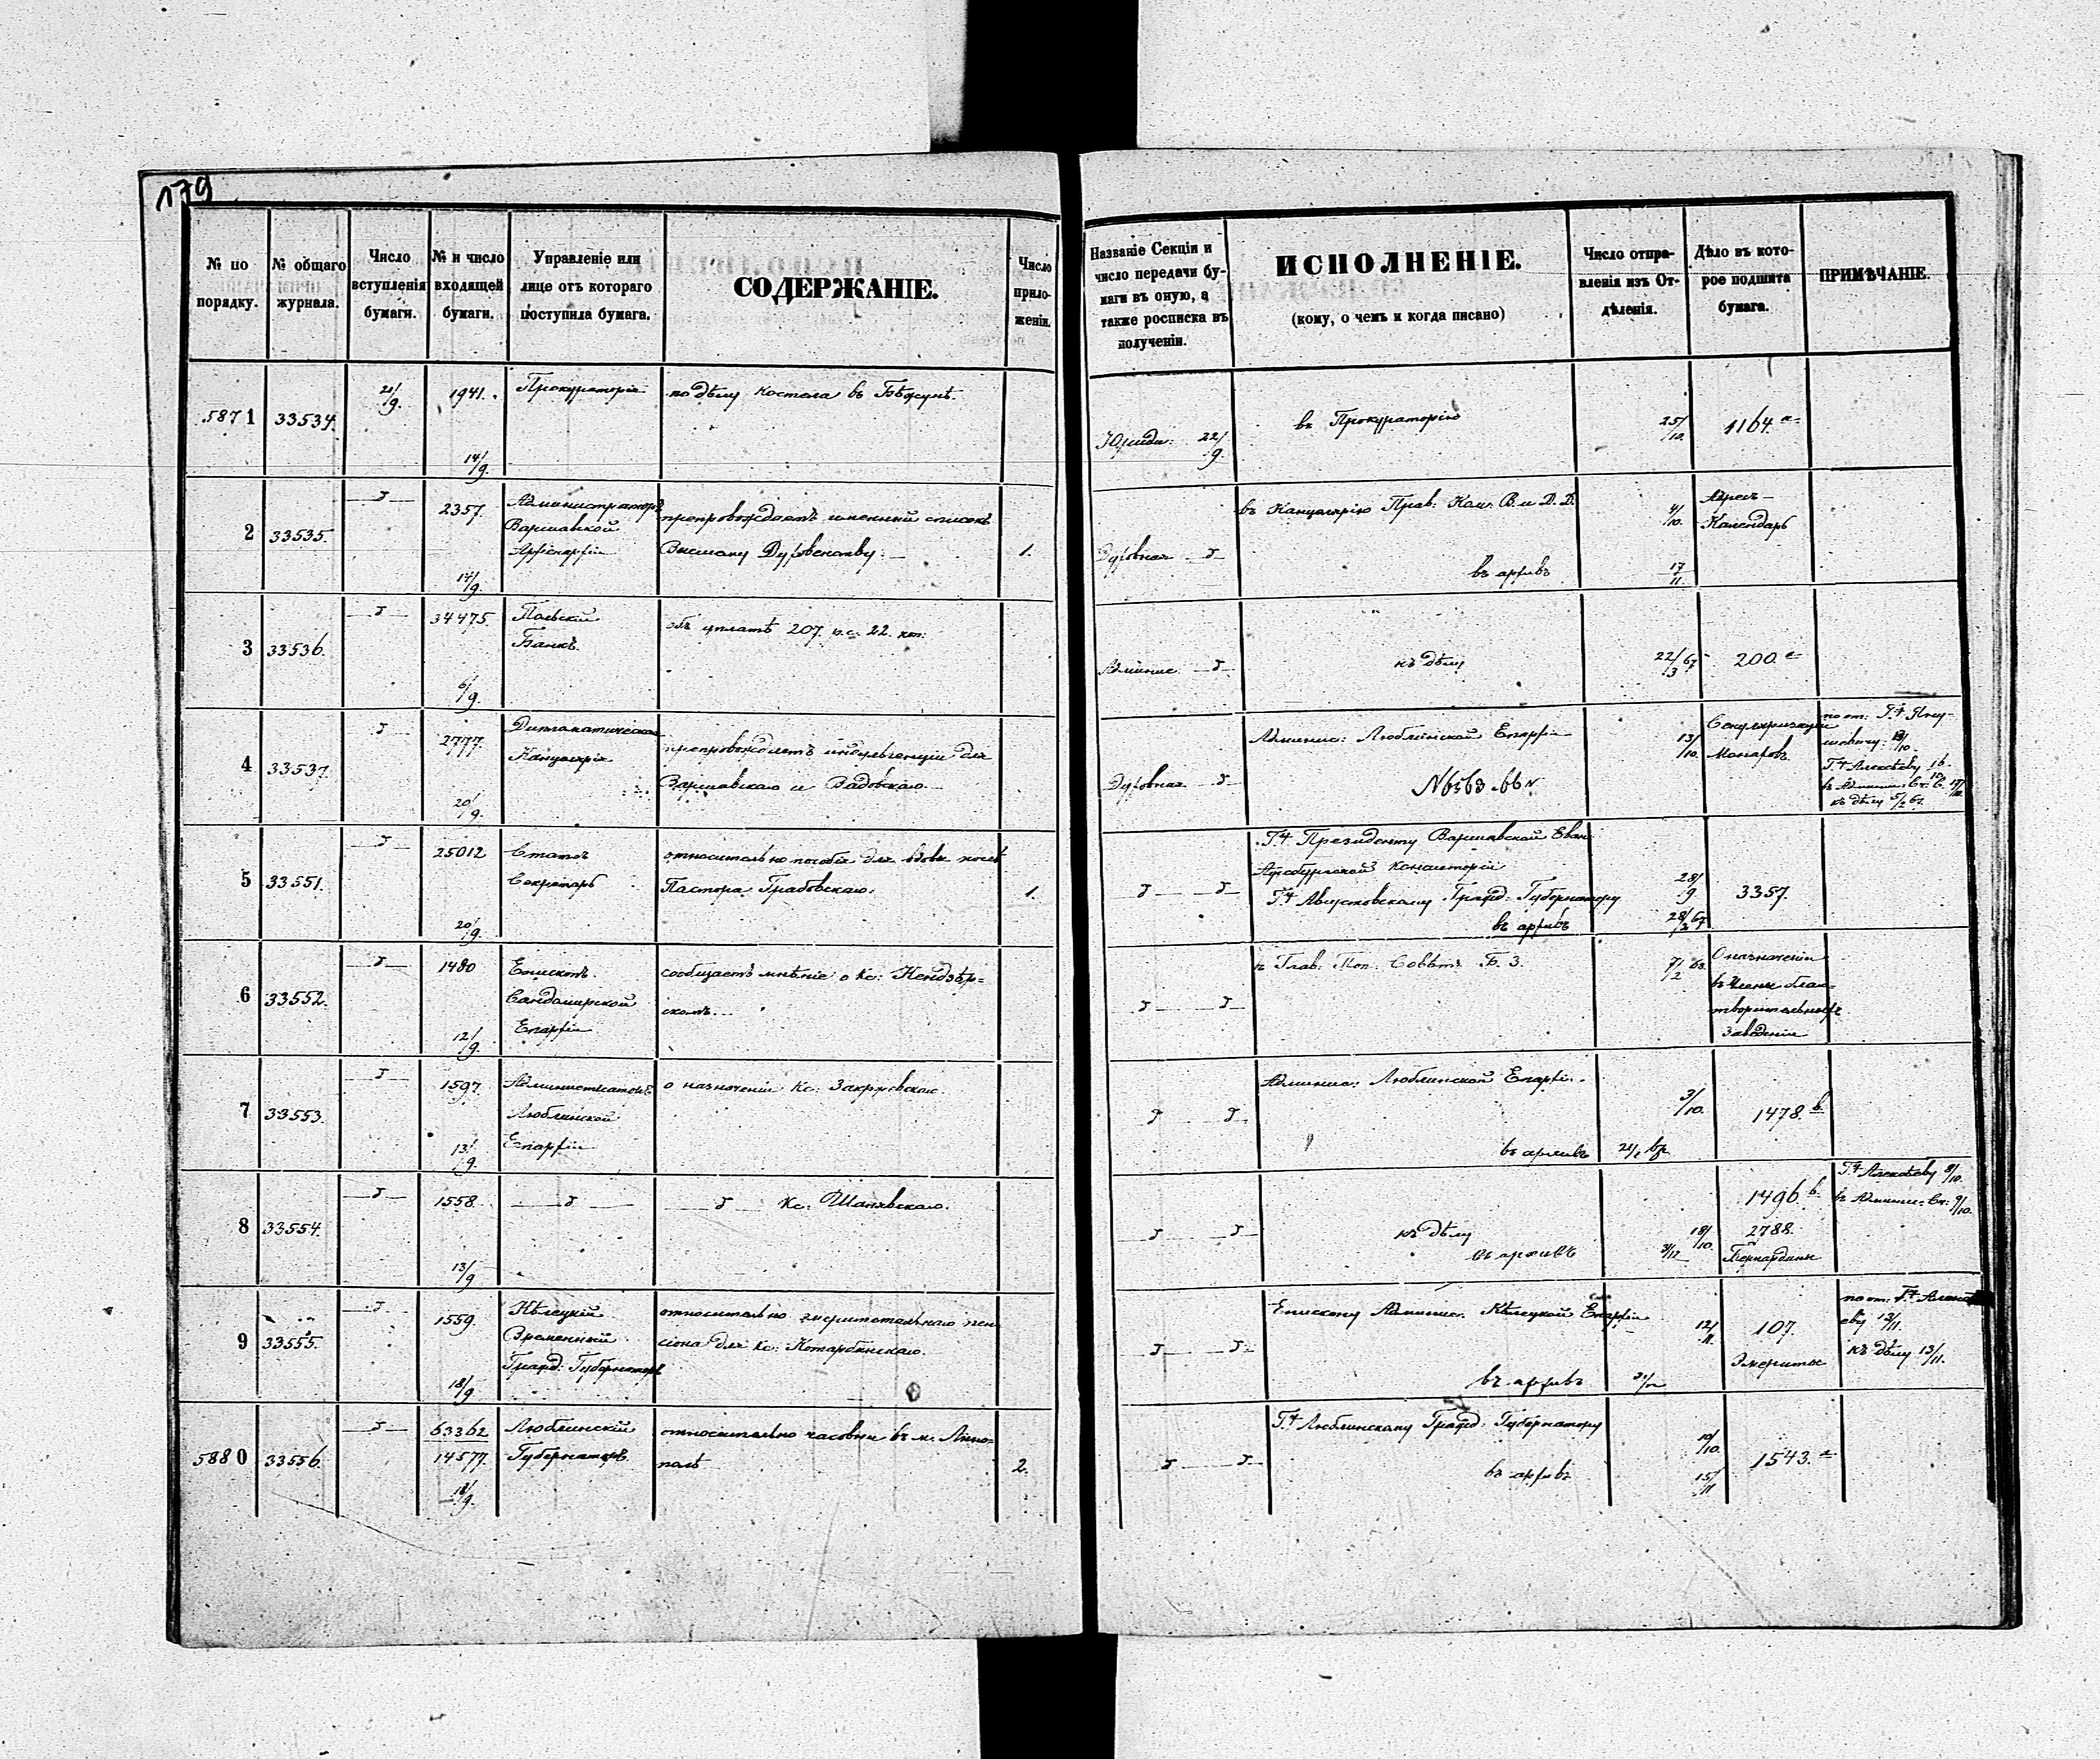 179
№ по порядку.
№ общаго журнала.
Число вступленія бумаги.
№ и число входящей бумаги.
Управленіе или лице отъ котораго поступила бумага.
СОДЕРЖАНІЕ.
Число приложеній.
Названіе Секціи и число передачи бумаги въ оную, а также росписка въ полученіи.
ИСПОЛНЕНІЕ.
(кому, о чемъ и когда писано)
Число отправленія изъ Отдѣленія.
Дѣло въ которое подшита бумага.
ПРИМѢЧАНІЕ.
5871 33534. 21/9. 1941. Прокураторія по дѣлу костела въ Бѣжунѣ.
14/9.
22/9. въ Прокураторію 25/10. 1164 а
2 33535. 2357. Администраторъ
Варшавской препровождаетъ именный списокъ
Архіепархіи Высшему Духовенству. 1.
14/9.
Духовная въ Канцелярію Прав: Ком: В. и Д. Д. 4/10. Адресъ-
Календарь
въ архивъ 17/11.
3 33536. 34475. Польскій
Банкъ. объ уплатѣ 207. р.с. 22. коп:
6/9.
къ дѣлу 22/3 67 200
4 33537. 2777. Дипломатическая
Канцелярія препровождаетъ индульгенціи для
Варшавскаго и Вадовскаго.
20/9.
Духовная Админис: Люблинской Епархіи 13/10. Секуляризаціи
Монаховъ.
къ дѣлу
5 33551. 25012 Статсъ
Секретарь относительно пособія для вдовы послѣ
Пастора Грабовскаго. 1.
20/9.
Гну Президенту Варшавской Еван:
Аугсбургской консисторіи
Гну Августовскому Гражд: Губернатору 28/9 3357.
въ архивъ 28/2 67
6 33552. 1480 Епископъ
Сандомирской сообщаетъ мнѣніе о Кс: Кендзѣр-
Епархіи скомъ.
12/9.
Глав: Поп: Совѣтъ Б. З. О назначеніи
въ Члены благо-
творительныхъ
Заведеніи
7 33553. 1597. Администраторъ о назначеніи Кс: Закржевскаго.
Люблинской
Епархіи
13/9.
Админис: Люблинской Епархіи. 3/10. 1478. в
въ архивъ
8 33554. 1558. Кс: Шанявскаго.
13/9
къ дѣлу 18/10. 1496 в
въ архивъ 3/12 2788.
Бернардины
Гну Алексѣеву 8/10.
въ Админис: Ст: 9/10.
9 33555. 1559. Кѣлецкій
Временный относительно эмеритальнаго пен
Гражд: Губернаторъ сіона для Кс: Котарбинскаго.
18/9
Епископу Админис. Кѣлецкой Епархіи 12/11. 107.
Эмериты
въ архивъ
къ дѣлу 13/11.
5880 33556. 63362 Люблинскій относительно часовни въ м. Анно-
14577. Губернаторъ. полѣ 2.
18/9.
Гну Люблинскому Гражд: Губернатору 10/10. 1543. а
въ архивъ 15/11